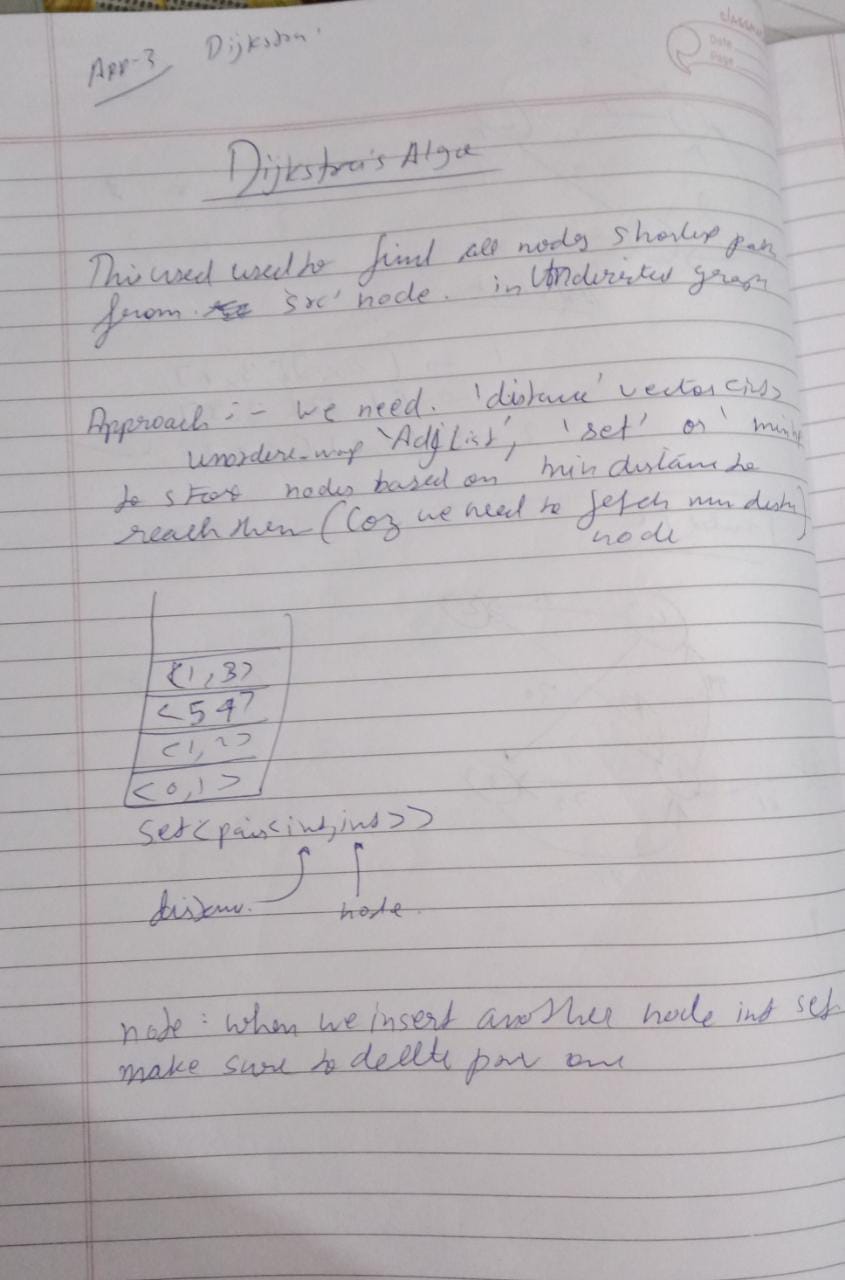 classmate
Date
Page
App-3 Dijkstra'
Dijkstra's Algo
This used used to find all nodes shortes path
from src' node. in Undirected graph
Approach :- we need. 'distance' vector<int>
unordere-map 'AdjList', 'set' or '
to store nodes based on min distance to
reach them (Coz we need to fetch min dist)
node
<1,3>
<5 4>
<1,2>
<0,1>
set<pair<int,int>>
distan. node.
note : when we insert another node int set
make sure to delete one